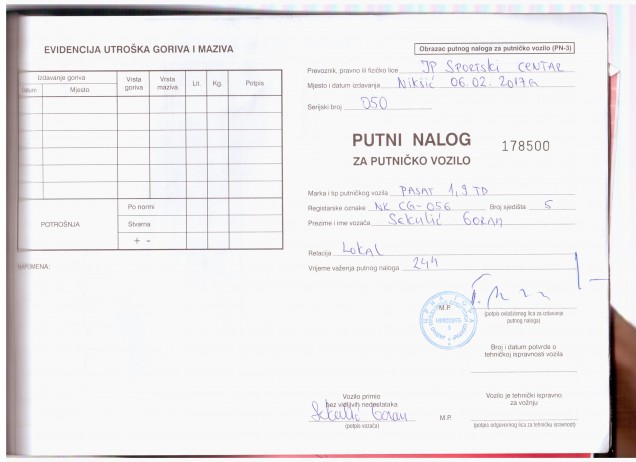 EVIDENCIJA UTROŠKA GORIVA I MAZIVA
Izdavanje goriva
Datum
Mjesto
Vrsta goriva
Vrsta maziva
Lit.
Kg.
Potpis
POTROŠNJA
Po normi
Stvarna
+ -
NAPOMENA:
Obrazac putnog naloga za putničko vozilo (PN-3)
Prevoznik, pravno ili fizičko lice JP SPORTSKI CENTAR
Mjesto i datum izdavanja Nikšić 06.02.2017g
Serijski broj 050
PUTNI NALOG
ZA PUTNIČKO VOZILO
178500
Marka i tip putničkog vozila PASAT 1,9 TD
Registarske oznake NK CG-056 Broj sjedišta 5
Prezime i ime vozača Sekulić Goran
Relacija LOKAL
Vrijeme važenja putnog naloga 24h
M.P.
(potpis ovlašćenog lica za izdavanje
putnog naloga)
Broj i datum potvrde o
tehničkoj ispravnosti vozila
Vozilo primio
bez vidljivih nedostataka
Sekulić Goran
(potpis vozača)
M.P.
Vozilo je tehnički ispravno
za vožnju
(potpis odgovornog lica za tehničku ispravnost)